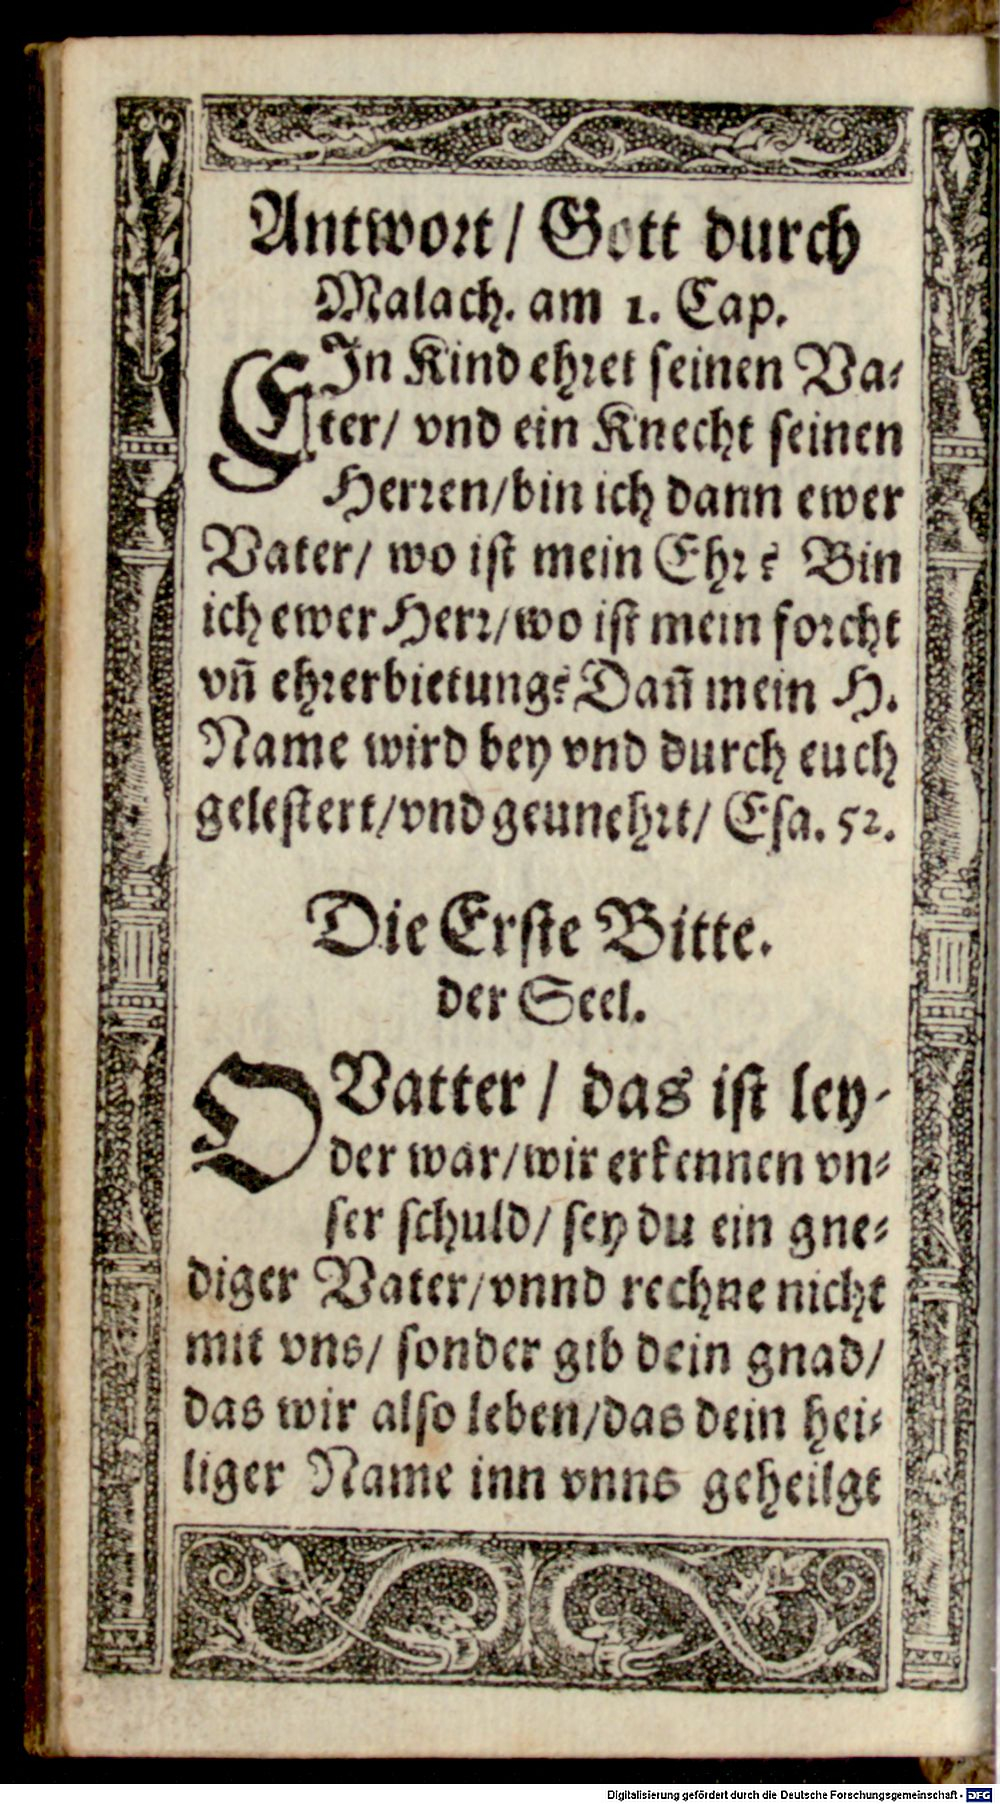 Antwort / Gott durch
Malach. am 1. Cap.
EIn Kind ehret seinen Va⸗
ter / vnd ein Knecht seinen
Herren / bin ich dann ewer
Vater / wo ist mein Ehr? Bin
ich ewer Herr / wo ist mein forcht
vn̄ ehrerbietung? Dan̄ mein H.
Name wird bey vnd durch euch
gelestert / vnd geunehrt / Esa. 52.
Die Erste Bitte.
der Seel.
O Vatter / das ist ley⸗
der war / wir erkennen vn⸗
ser schuld / sey du ein gne⸗
diger Vater / vnnd rechne nicht
mit vns / sonder gib dein gnad /
das wir also leben / das dein hei⸗
liger Name inn vnns geheilgt
Digitalisierung gefördert durch die Deutsche Forschungsgemeinschaft - DFG